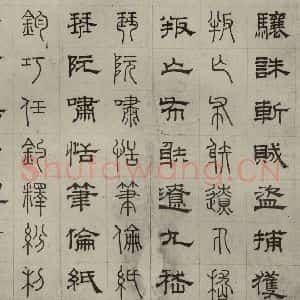 驤誅斬賊盜捕獲
叛亡布射遼丸嵇
叛亡布射遼丸嵇
琴阮嘯恬筆倫紙
琴阮嘯恬筆倫紙
鈞巧任釣釋紛利
Shufawang.CN